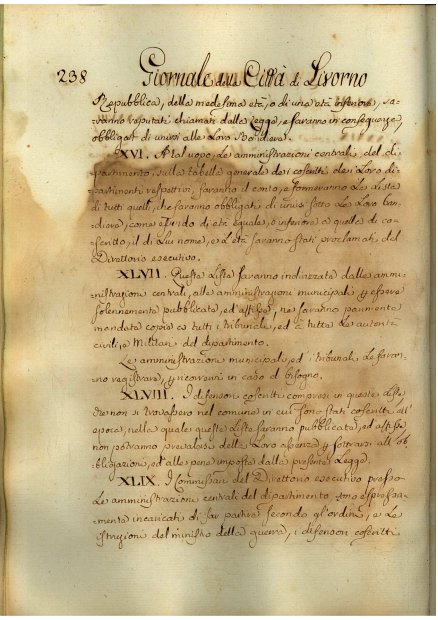 238 Giornale della Città di Livorno
Repubblica, della medesima età, o di una età inferiore, sa-
ranno reputati chiamati dalla legge, e saranno in conseguenza,
obbligati di unirsi alle Loro Bandiere.
XVI. A tal uopo, Le amministrazioni centrali del di-
partimento, sulla tabella generale dei coscritti dei Loro di-
partimenti respettivi, faranno il conto, e formeranno Le Liste
di tutti quelli, che saranno obbligati di unirsi sotto Le Loro ban-
diere, come essendo di età equale, o inferiore a quella di co-
scritto, il di Lui nome, e L'età saranno stati proclamati del
Direttorio esecutivo.
XLVII. Queste Liste saranno indirizzate dalle ammi-
nistrazioni centrali, alle amministrazioni municipali
solennemente pubblicata, ed affisse, ne saranno parimente
mandata copia a tutti i tribunali, ed a tutte Le autorità
civili, e Militari del dipartimento.
Le amministrazioni municipali, ed i tribunali Le faran-
no registrare, per ricorrervi in caso di bisogno.
XLVIII. I difensori coscritti compresi in queste Liste
che non si trovassero nel comune in cui sono stati coscritti all'
epoca, nella quale queste Liste saranno pubblicata, ed affisse,
non potranno prevalersi della Loro assenza per sottrarsi all'ob-
bligazione, ed alle pene imposte dalla presente Legge.
XLIX. I Commissari del Direttorio esecutivo presso
Le amministrazioni centrali del dipartimento sono espressa-
mente incaricati di far partire secondo gl'ordini, e Le
istruzioni del ministro della guerra, i difensori coscritti